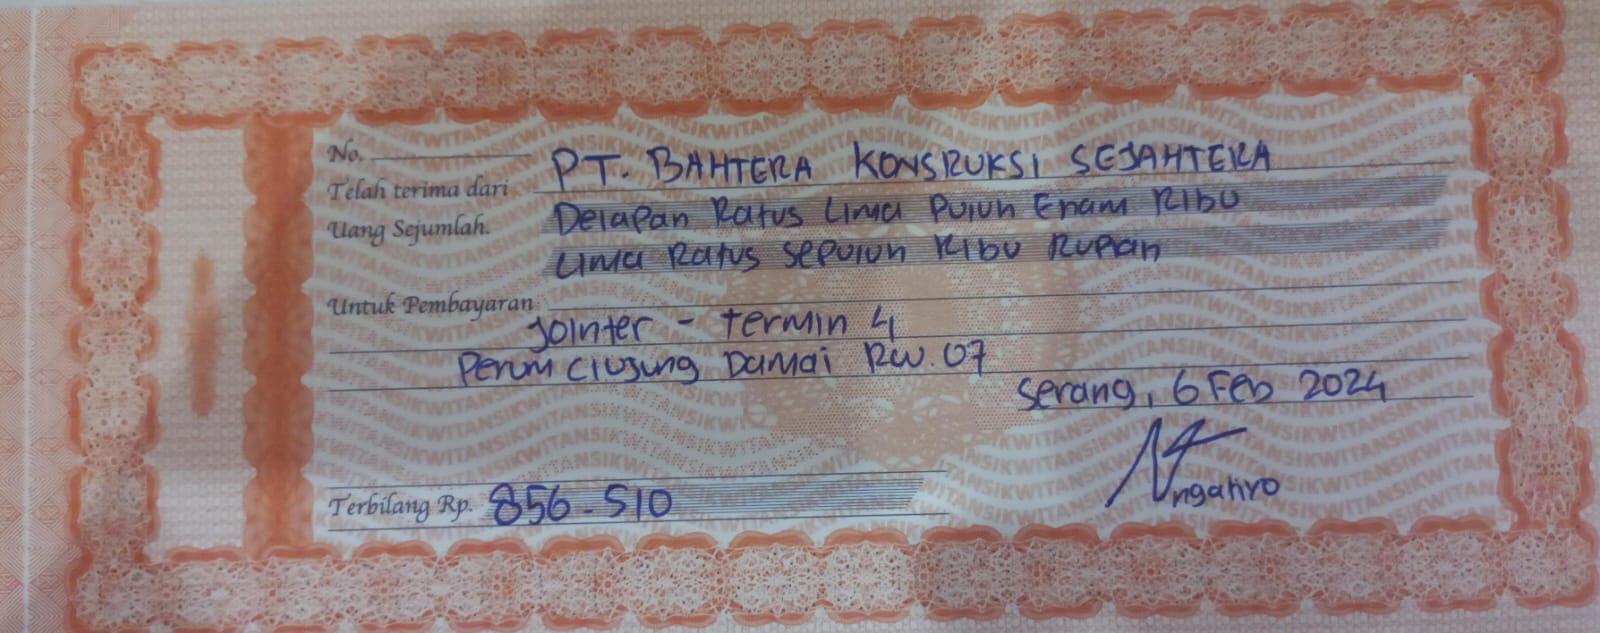 No.
Telah terima dari PT. BAHTERA KONSRUKSI SEJAHTERA
Uang Sejumlah. Delapan Ratus Lima Puluh Enam Ribu
Lima Ratus Sepuluh Ribu Rupiah
Untuk Pembayaran
Jointer - Termin 4
Perum Ciujung Damai RW. 07
Serang, 6 Feb 2024
Terbilang Rp. 856-510